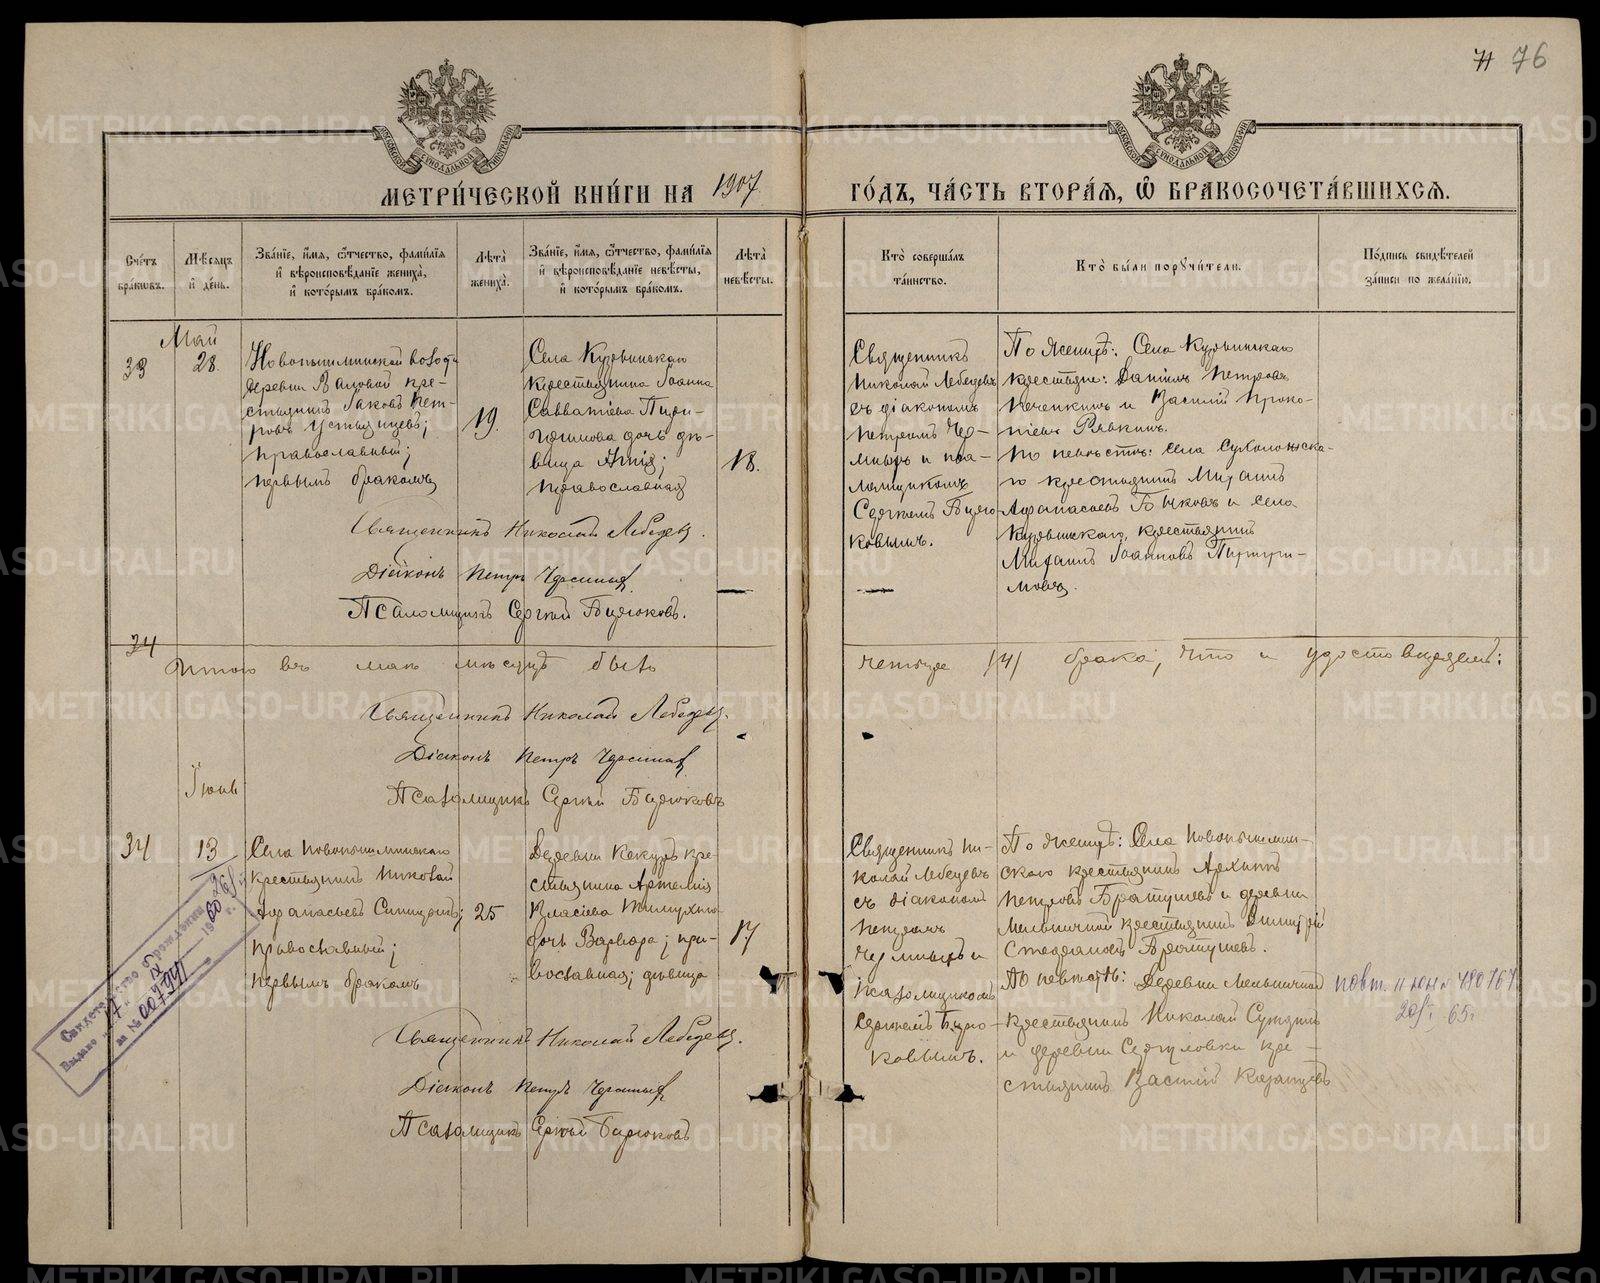 71 76
МЕТРИ́ЧЕСКОЙ КНИ́ГИ НА 1907
ГО́ДЪ, ЧА́СТЬ ВТОРА́Я, Ѡ БРАКОСОЧЕТА́ВШИХСЯ.
Сче́тъ бра́ковъ.
Мѣ́сяцъ и де́нь.
Зва́нїе, и́мя, ѻ҆́тчество, фами́лїя и вѣроисповѣ́данїе жениха̀, и кото́рымъ бра́комъ.
Лѣта̀ жениха̀.
Зва́нїе, и́мя, ѻ҆́тчество, фами́лїя и вѣроисповѣ́данїе невѣ́сты, и кото́рымъ бра́комъ.
Лѣта̀ невѣ́сты.
Кто̀ соверша́лъ та́инство.
Кто̀ бы́ли поручи́тели.
По́дпись свидѣ́телей за́писи по жела́нїю.
33
Май
28.
Новопышминской волости
деревни Валовой кре-
стьянинъ Іаковъ Пет-
ровъ Устьянцевъ;
православный;
первымъ бракомъ
19.
Села Курьинскаго
крестьянина Іоанна
Савватіева
дочь дѣ-
вица
православная
18.
Священникъ
Николай Лебедевъ
съ діакономъ
Петромъ Чер-
и пса-
ломщикомъ
Сергіемъ Бирю-
ковымъ.
По женихѣ: Села Курьинскаго
крестьяне: Даніилъ Петровъ
Печенкинъ и Василій Проко-
піевъ Рявкинъ.
По невѣстѣ: села Сухоложска-
го крестьянинъ Михаилъ
Аѳанасьевъ Быковъ и села
Курьинскаго, крестьянинъ
Михаилъ Іоанновъ
Священникъ Николай Лебедевъ.
Діаконъ Петръ
Псаломщикъ Сергій Бирюковъ.
34
Итого въ маѣ мѣсяцѣ было
четыре /4/ брака, что и удостовѣряемъ:
Священникъ Николай Лебедевъ.
Діаконъ Петръ
Псаломщикъ Сергій Бирюковъ
Іюнь
34
13
Села Новопышминскаго
крестьянинъ Николай
Аѳанасьевъ
православный;
первымъ бракомъ
25
Деревни Кекуръ кре-
стьянина Артемія
Власіева
дочь Варвара; пра-
вославная; дѣвица
17
Священникъ Ни-
колай Лебедевъ
съ діакономъ
Петромъ
и
псаломщикомъ
Сергіемъ Бирю-
ковымъ.
По женихѣ: Села Новопышмин-
скаго крестьянинъ Архипъ
Петровъ Братушевъ и деревни
Мельничной крестьянинъ Димитрій
Стефановъ Братушевъ.
По невѣстѣ: Деревни Мельничной
крестьянинъ Николай
и деревни Сергуловки кре-
стьянинъ Василій
повт. II ЮН № 480767
20/I 65г
Священникъ Николай Лебедевъ.
Діаконъ Петръ
Псаломщикъ Сергій Бирюковъ
Свидетельство о рождении
Выдано "17" IX 1960 г.
за № 007941